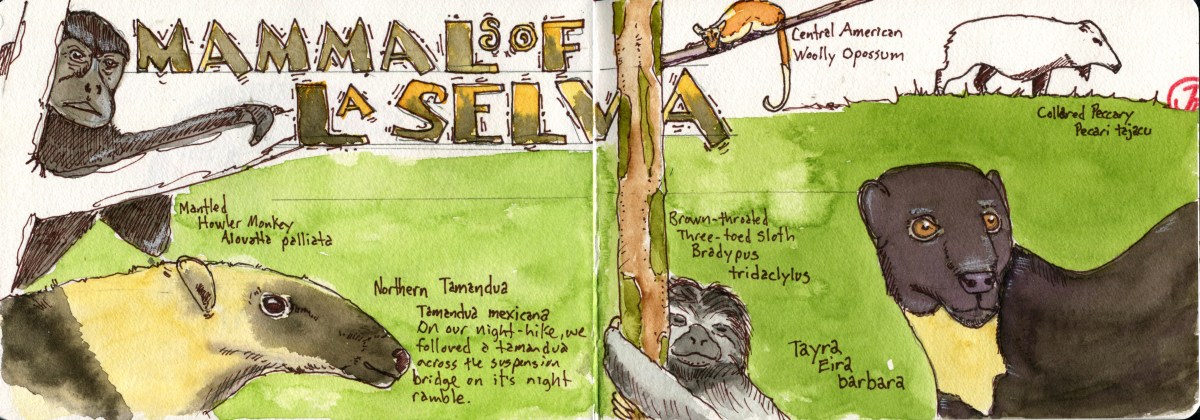 MAMMALS OF
LA SELVA
Central American
Woolly Opossum
Collared Peccary
Pecari tajacu
Mantled
Howler Monkey
Alouatta palliata
Northern Tamandua
Tamandua mexicana
On our night-hike, we
followed a tamandua
across the suspension
bridge on it's night
ramble.
Brown-throated
Three-toed Sloth
Bradypus
tridactylus
Tayra
Eira
barbara